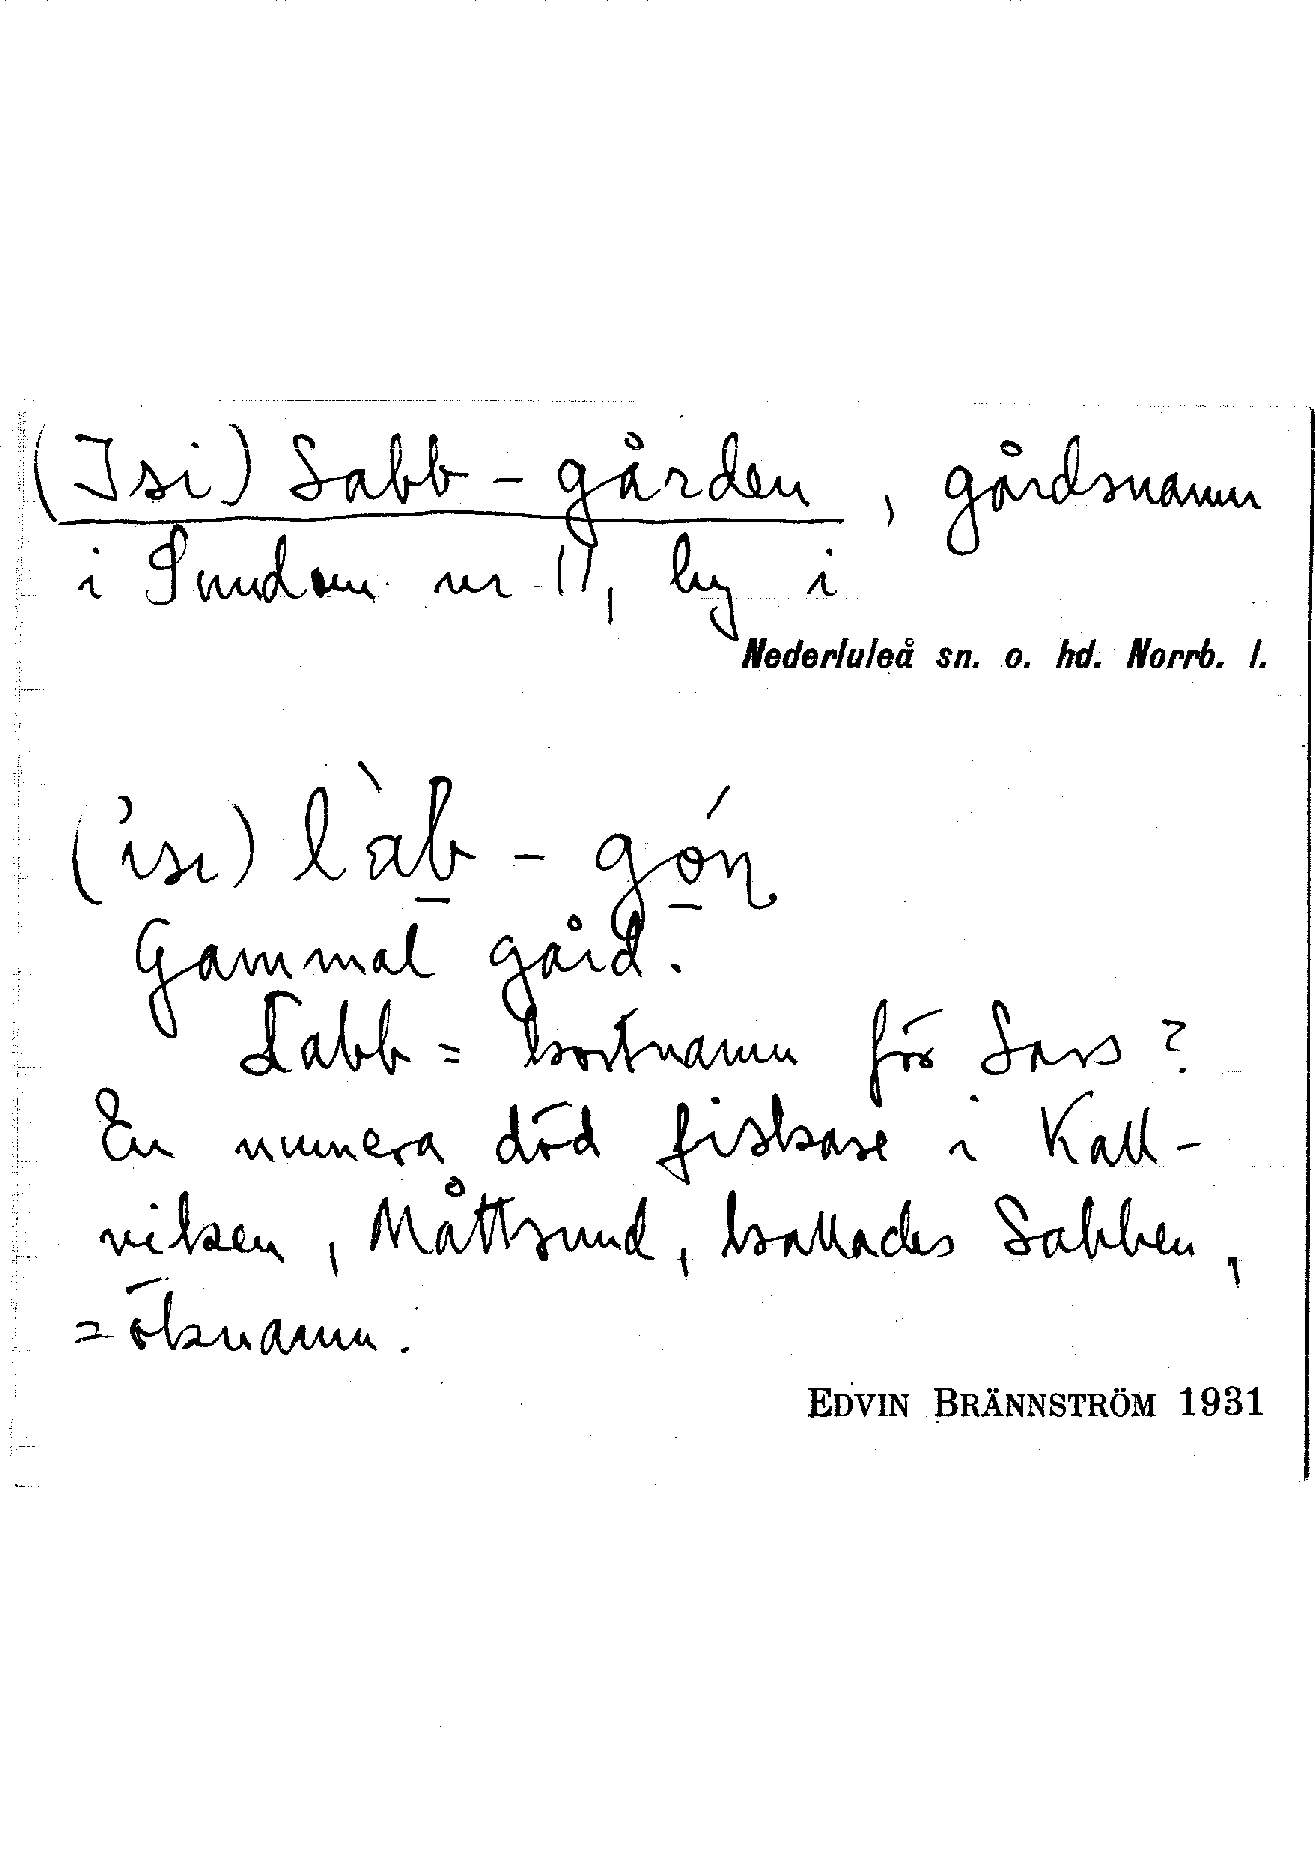 (Isi) Labb-gården, gårdsnamn
i Sundom nr 11, by i
Nederluleå sn. o. hd. Norrb. l.
('ısı) l`ab̲ - gó̲ṇ
Gammal gård.
Labb = kortnamn för Lars?
En numera död fiskare i Kall-
viken, Måttsund, kallades Labben,
= öknamn.
EDVIN BRÄNNSTRÖM 1931